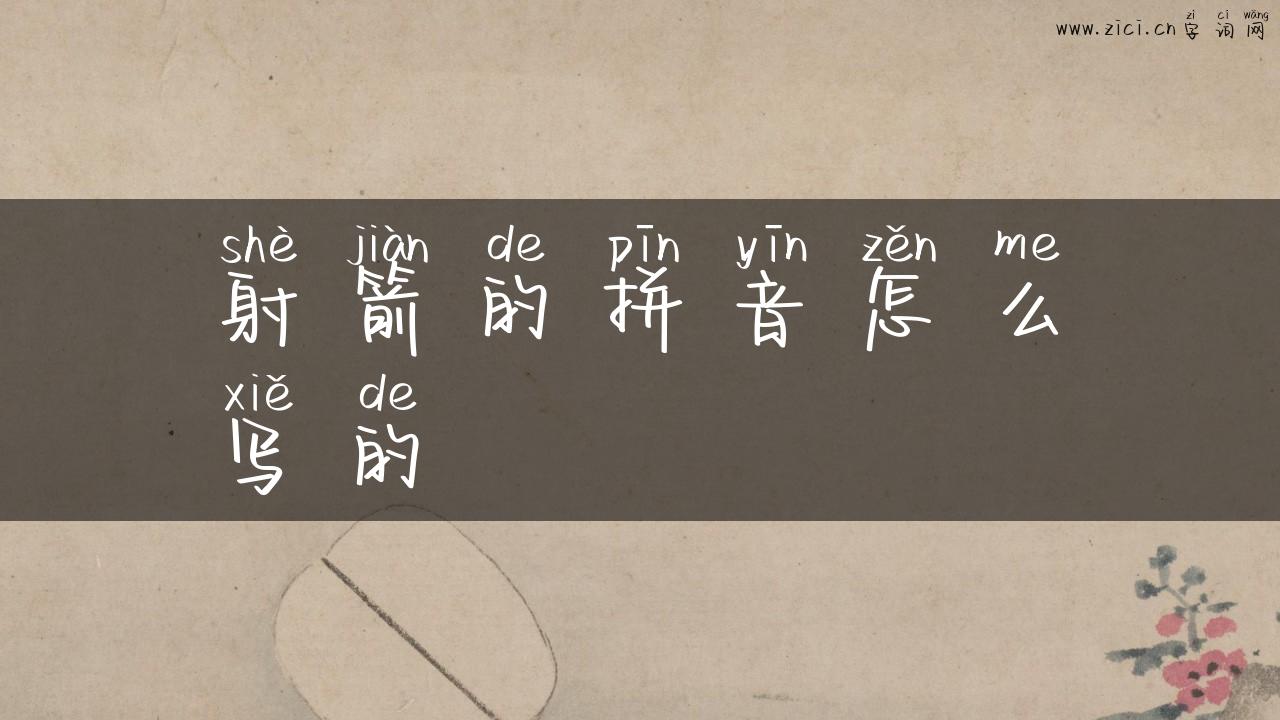 zì cí wǎng
www.zici.cn 字 词 网
shè jiàn de pīn yīn zěn me
射 箭 的 拼 音 怎 么
xiě de
写 的